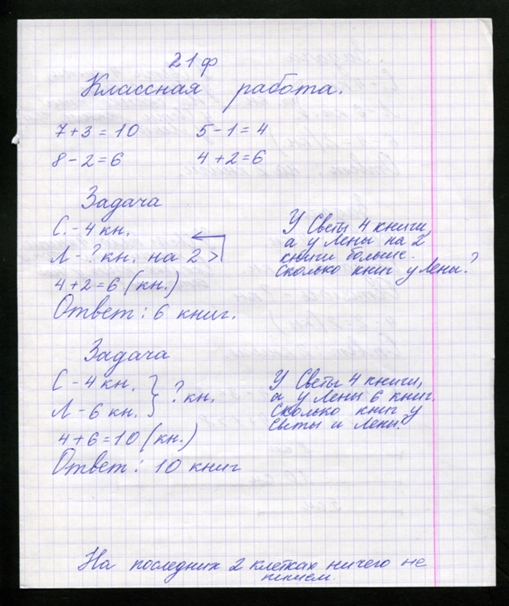 21ф
Классная работа.
7+3=10 5-1=4
8-2=6 4+2=6
Задача
С.-4 кн.
Л-? кн. на 2 >
4+2=6 (кн.)
Ответ: 6 книг.
У Светы 4 книги,
а у Лены на 2
книги больше.
Сколько книг у Лены?
Задача
С-4 кн.
Л-6 кн.
} ? кн.
4+6=10 (кн.)
Ответ: 10 книг
У Светы 4 книги,
а у Лены 6 книг.
Сколько книг у
Светы и Лены?
На последних 2 клетках ничего не
пишем.